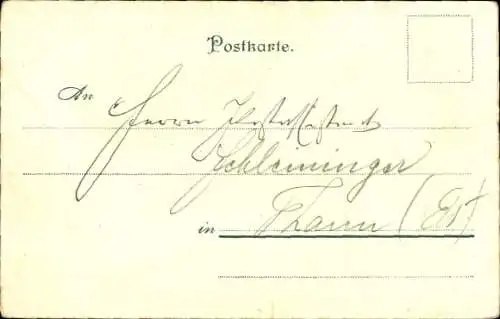 Postkarte.
An Herrn
Schleininger
in Thann (Els)